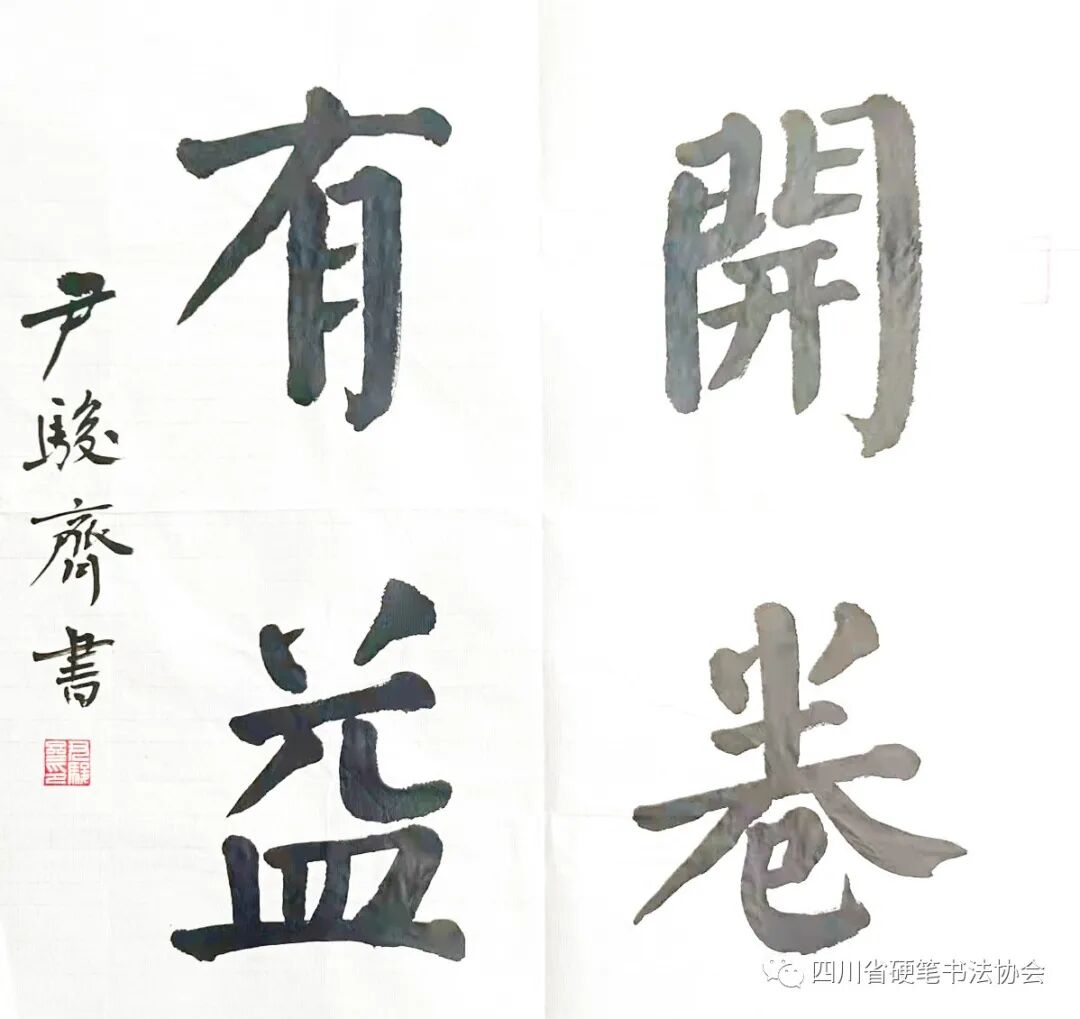 開卷
有益
尹駿齊書
四川省硬笔书法协会